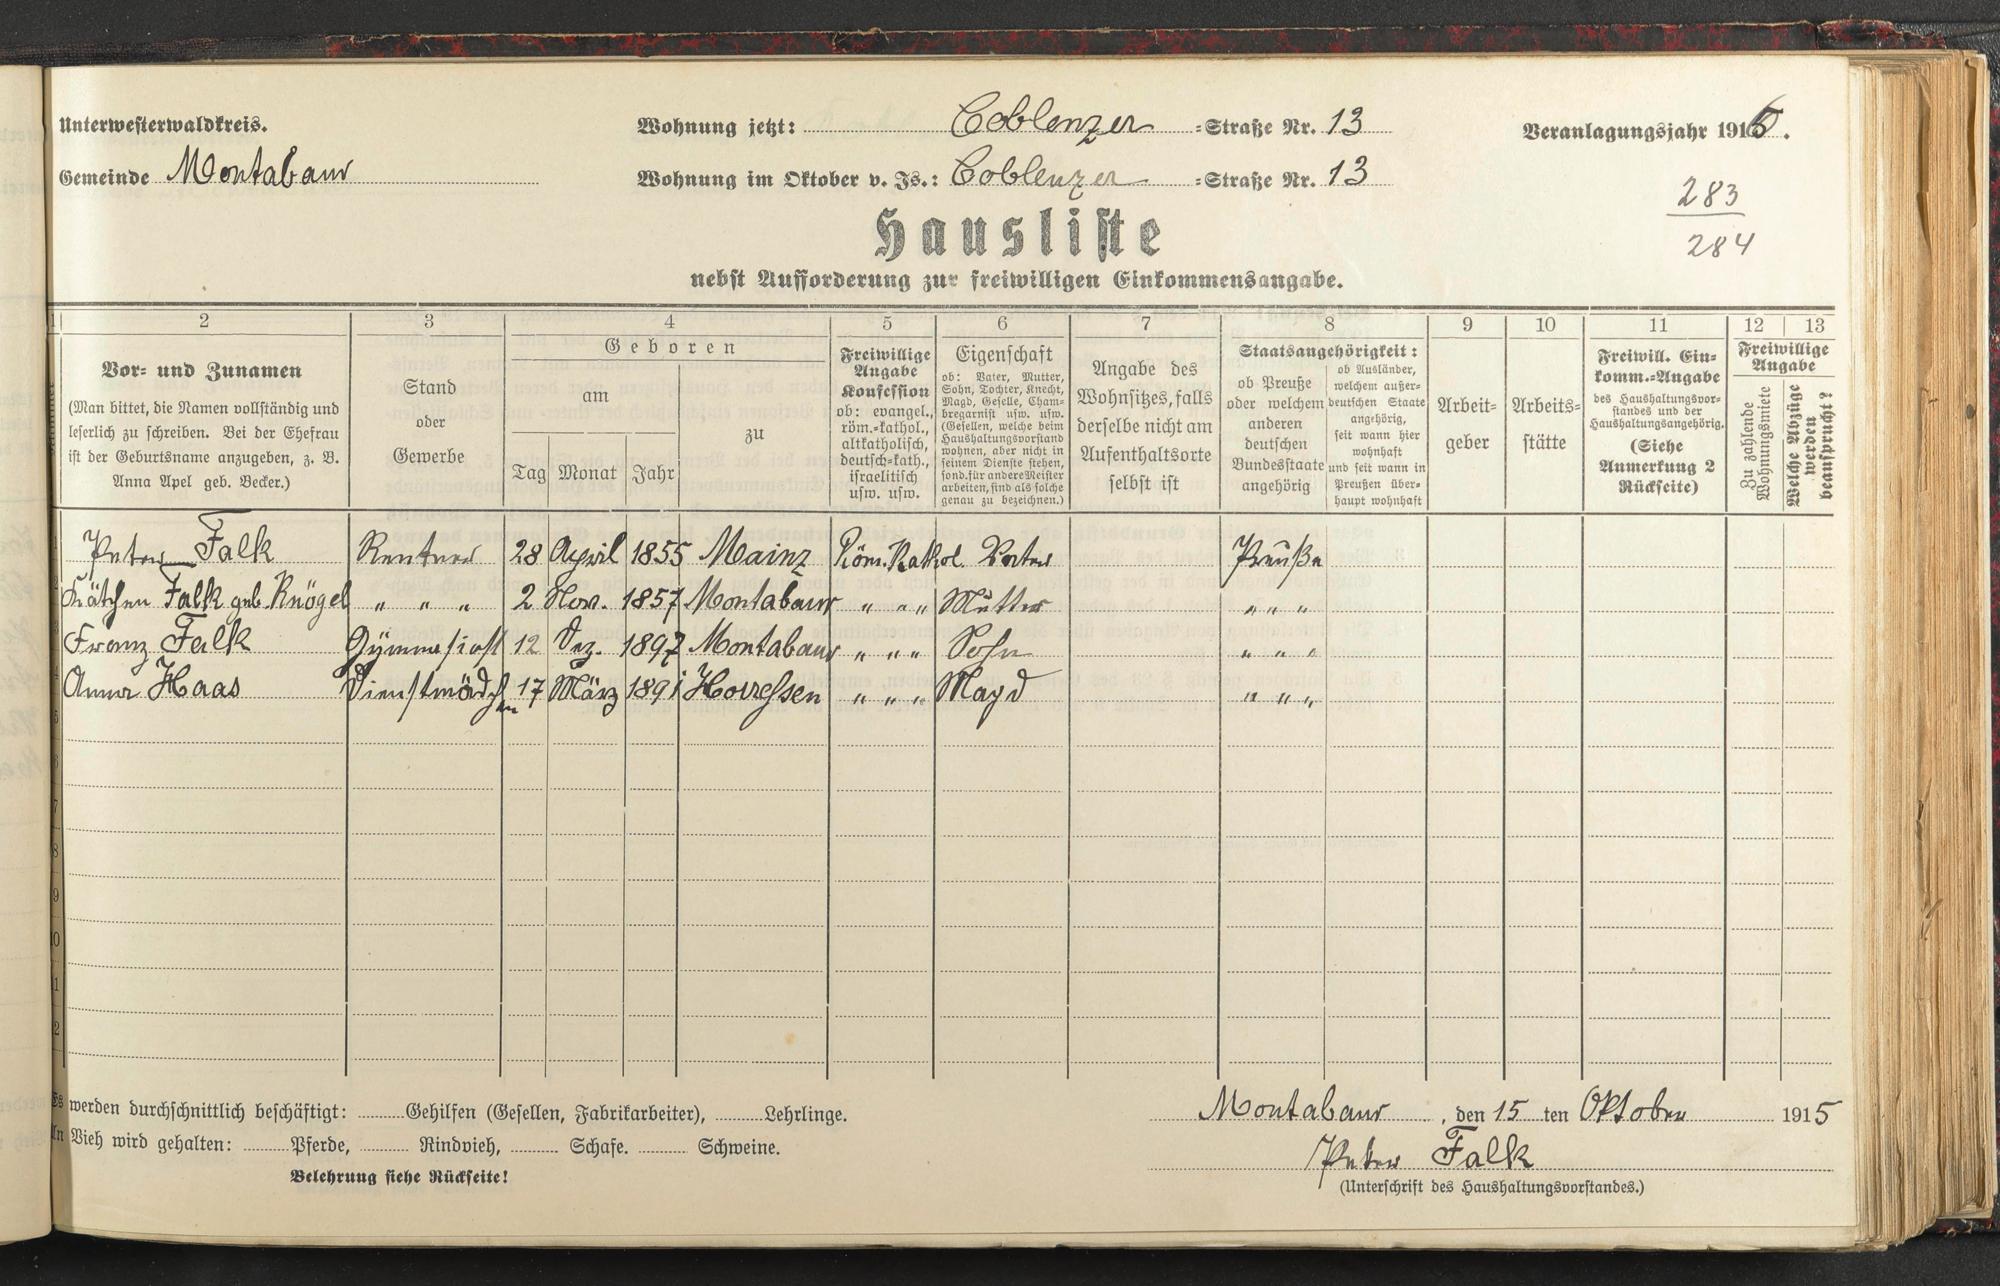 Unterwesterwaldkreis.
Gemeinde Montabaur
Wohnung jetzt: Coblenzer -Straße Nr. 13
Wohnung im Oktober v. Js.: Coblenzer -Straße Nr. 13
Veranlagungsjahr 1916.
283
284
Hausliste
nebst Aufforderung zur freiwilligen Einkommensangabe.
1 2 3 4 5 6 7 8 9 10 11 12 13
Vor- und Zunamen
(Man bittet, die Namen vollständig und
leserlich zu schreiben. Bei der Ehefrau
ist der Geburtsname anzugeben, z. B.
Anna Apel geb. Becker.)
Stand
oder
Gewerbe
Geboren
am
Tag Monat Jahr
zu
Freiwillige
Angabe
Konfession
ob: evangel.,
röm.-kathol.,
altkatholisch,
deutsch-kath.,
israelitisch
usw. usw.
Eigenschaft
ob: Vater, Mutter,
Sohn, Tochter, Knecht,
Magd, Geselle, Cham-
bregarnist usw. usw.
(Gesellen, welche beim
Haushaltungsvorstand
wohnen, aber nicht in
seinem Dienste stehen,
sond. für andere Meister
arbeiten, sind als solche
genau zu bezeichnen.)
Angabe des
Wohnsitzes, falls
derselbe nicht am
Aufenthaltsorte
selbst ist
Staatsangehörigkeit:
ob Preuße
oder welchem
anderen
deutschen
Bundesstaate
angehörig
ob Ausländer,
welchem außer-
deutschen Staate
angehörig,
seit wann hier
wohnhaft
und seit wann in
Preußen über-
haupt wohnhaft
Arbeit-
geber
Arbeits-
stätte
Freiwill. Ein-
komm.-Angabe
des Haushaltungsvor-
standes und der
Haushaltungsangehörig.
(Siehe
Anmerkung 2
Rückseite)
Freiwillige
Angabe
Zu zahlende
Wohnungsmiete
Welche Abzüge
werden
beansprucht?
Peter Falk Rentner 28 April 1855 Mainz Röm. Kathol. Vater Preuße
Kätchen Falk geb. Knögel " " " 2 Nov. 1857 Montabaur " " " Mutter " " "
Franz Falk Gymnasiast 12 Dez. 1897 Montabaur " " " Sohn " " "
Anna Haas Dienstmädchen 17 März 1891 Horressen " " " Magd " " "
5
6
7
8
9
0
1
2
Es werden durchschnittlich beschäftigt: Gehilfen (Gesellen, Fabrikarbeiter), Lehrlinge.
An Vieh wird gehalten: Pferde, Rindvieh, Schafe. Schweine.
Belehrung siehe Rückseite!
Montabaur, den 15 ten Oktober 1915
Peter Falk
(Unterschrift des Haushaltungsvorstandes.)